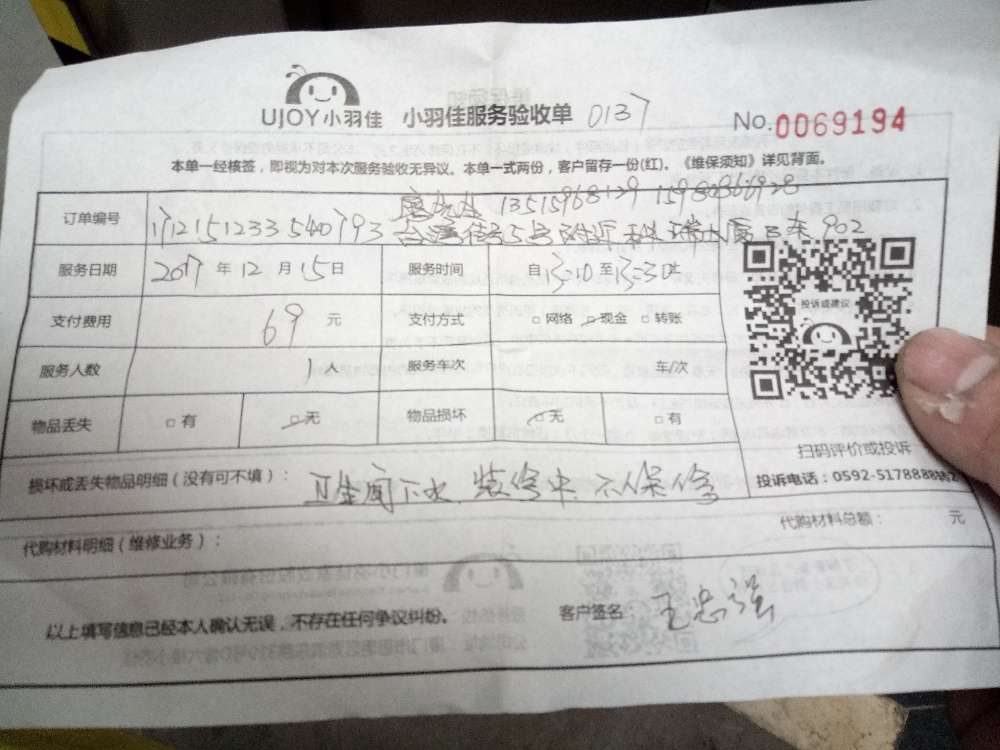 UJOY小羽佳 小羽佳服务验收单 0137 No.0069194
本单一经核签，即视为对本次服务验收无异议。本单一式两份，客户留存一份(红)。《维保须知》详见背面。
13515968129
订单编号 171215123354079３ 902
服务日期 2017 年 12 月 15 日 服务时间 自 13:10 至 13:30 时
支付费用 69 元 支付方式 □ 网络 □ 现金 □ 转账
投诉或建议
服务人数 1 人 服务车次 车/次
物品丢失 □ 有 □ 无 物品损坏 □ 无 □ 有
扫码评价或投诉
损坏或丢失物品明细（没有可不填）： 卫生间下水 装修中 不保修 投诉电话：0592-5178888转2
代购材料明细（维修业务）： 代购材料总额： 元
以上填写信息已经本人确认无误，不存在任何争议纠纷。 客户签名 王忠强